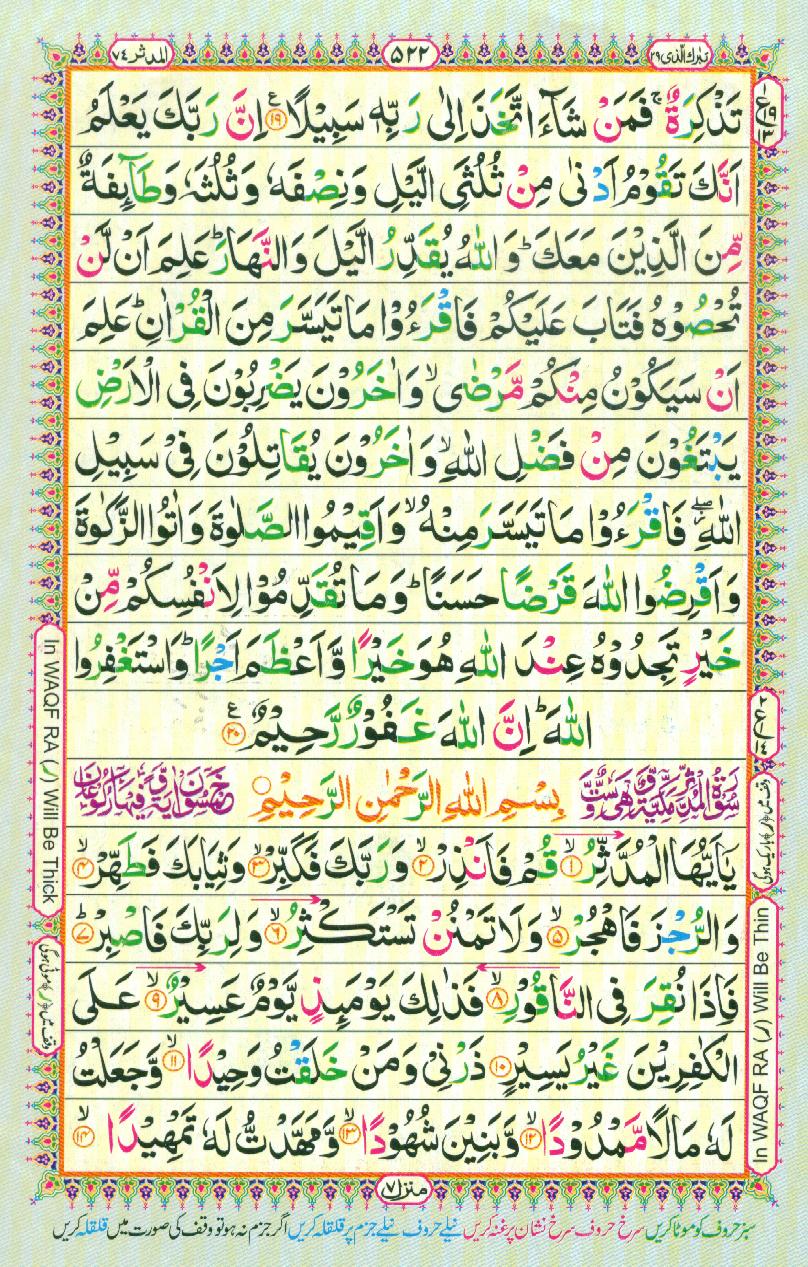 تبٰرك الّذی ٢٩
٥٢٢
المدثر ٧٤
تَذْكِرَةٌ ۚ فَمَنْ شَآءَ اتَّخَذَ اِلٰى رَبِّهٖ سَبِيْلًا ﴿١٩﴾ اِنَّ رَبَّكَ يَعْلَمُ
اَنَّكَ تَقُوْمُ اَدْنٰى مِنْ ثُلُثَىِ الَّيْلِ وَنِصْفَهٗ وَثُلُثَهٗ وَطَآئِفَةٌ
مِّنَ الَّذِيْنَ مَعَكَ ؕ وَاللّٰهُ يُقَدِّرُ الَّيْلَ وَالنَّهَارَ ؕ عَلِمَ اَنْ لَّنْ
تُحْصُوْهُ فَتَابَ عَلَيْكُمْ فَاقْرَءُوْا مَا تَيَسَّرَ مِنَ الْقُرْاٰنِ ؕ عَلِمَ
اَنْ سَيَكُوْنُ مِنْكُمْ مَّرْضٰى ۙ وَاٰخَرُوْنَ يَضْرِبُوْنَ فِى الْاَرْضِ
يَبْتَغُوْنَ مِنْ فَضْلِ اللّٰهِ ۙ وَاٰخَرُوْنَ يُقَاتِلُوْنَ فِىْ سَبِيْلِ
اللّٰهِ ۖ فَاقْرَءُوْا مَا تَيَسَّرَ مِنْهُ ۙ وَاَقِيْمُوا الصَّلٰوةَ وَاٰتُوا الزَّكٰوةَ
وَاَقْرِضُوا اللّٰهَ قَرْضًا حَسَنًا ؕ وَمَا تُقَدِّمُوْا لِاَنْفُسِكُمْ مِّنْ
خَيْرٍ تَجِدُوْهُ عِنْدَ اللّٰهِ هُوَ خَيْرًا وَّاَعْظَمَ اَجْرًا ؕ وَاسْتَغْفِرُوا
اللّٰهَ ؕ اِنَّ اللّٰهَ غَفُوْرٌ رَّحِيْمٌ ﴿٢٠﴾
بِسْمِ اللّٰهِ الرَّحْمٰنِ الرَّحِيْمِ
يٰۤاَيُّهَا الْمُدَّثِّرُ ۙ ﴿١﴾ قُمْ فَاَنْذِرْ ۙ ﴿٢﴾ وَرَبَّكَ فَكَبِّرْ ۙ ﴿٣﴾ وَثِيَابَكَ فَطَهِّرْ ۙ ﴿٤﴾
وَالرُّجْزَ فَاهْجُرْ ۙ ﴿٥﴾ وَلَا تَمْنُنْ تَسْتَكْثِرُ ۙ ﴿٦﴾ وَلِرَبِّكَ فَاصْبِرْ ؕ ﴿٧﴾
فَاِذَا نُقِرَ فِى النَّاقُوْرِ ۙ ﴿٨﴾ فَذٰلِكَ يَوْمَئِذٍ يَّوْمٌ عَسِيْرٌ ۙ ﴿٩﴾ عَلَى
الْكٰفِرِيْنَ غَيْرُ يَسِيْرٍ ﴿١٠﴾ ذَرْنِىْ وَمَنْ خَلَقْتُ وَحِيْدًا ۙ ﴿١١﴾ وَّجَعَلْتُ
لَهٗ مَالًا مَّمْدُوْدًا ۙ ﴿١٢﴾ وَّبَنِيْنَ شُهُوْدًا ۙ ﴿١٣﴾ وَّمَهَّدْتُّ لَهٗ تَمْهِيْدًا ۙ ﴿١٤﴾
منزل ٧
سبز حروف کو موٹا کریں سرخ حروف سرخ نشان پر غنہ کریں نیلے حروف نیلے جزم پر قلقلہ کریں اگر جزم نہ ہو تو وقف کی صورت میں قلقلہ کریں
In WAQF RA (ر) Will Be Thick
وقف میں (ر) موٹی ہوگی
وقف میں (ر) باریک ہوگی
In WAQF RA (ر) Will Be Thin